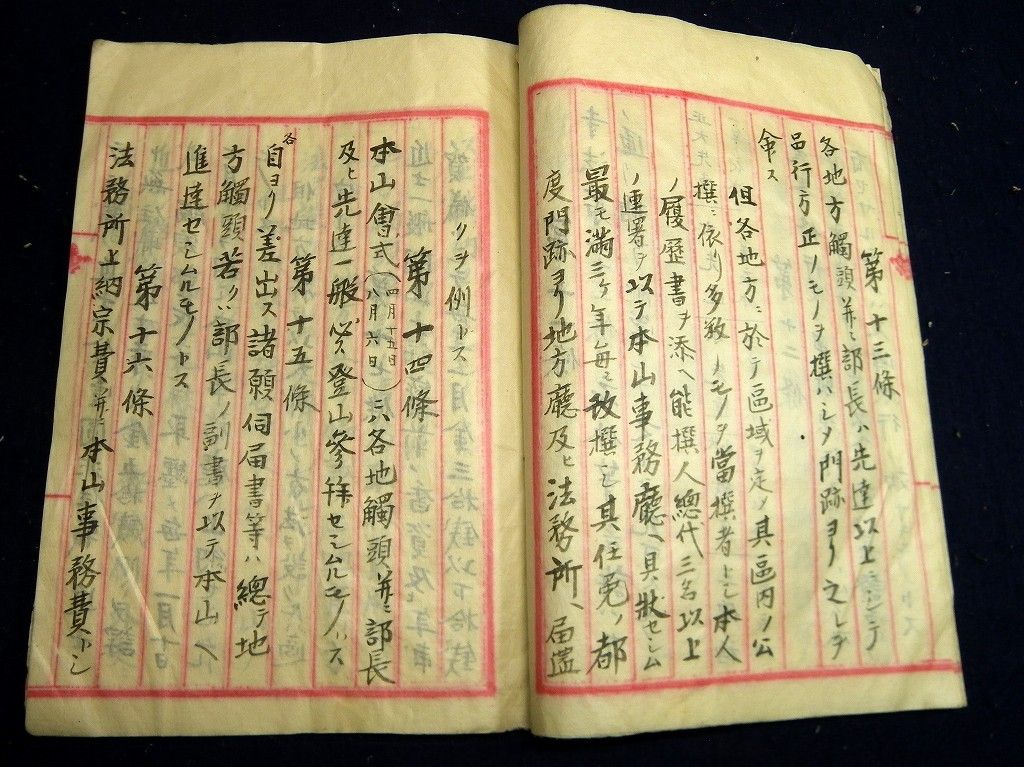 第十三條
各地方觸頭并ニ部長ハ先達以上ニシテ
品行方正ノモノヲ撰ハシメ門跡ヨリ之レヲ
命ス
但各地方ニ於テ區域ヲ定メ其區内ノ公
撰ニ依リ多数ノモノヲ當撰者トシ本人
ノ履歴書ヲ添ヘ能撰人總代三名以上
ノ連署ヲ以テ本山事務廳ヘ具狀セシム
最モ滿三ケ年毎ニ改撰シ其任免ノ都
度門跡ヨリ地方廳及ヒ法務所ヘ届
ヲ例トス
第十四條
本山會式(四月十五日八月六日)ニハ各地觸頭并ニ部長
及ヒ先達一般必ス登山參拜セシムルモノトス
第十五條
各自ヨリ差出ス諸願伺届書等ハ總テ地
方觸頭若クハ部長ノ副書ヲ以テ本山ヘ
進達セシムルモノトス
第十六條
法務所上納宗費并ニ本山事務費トシ